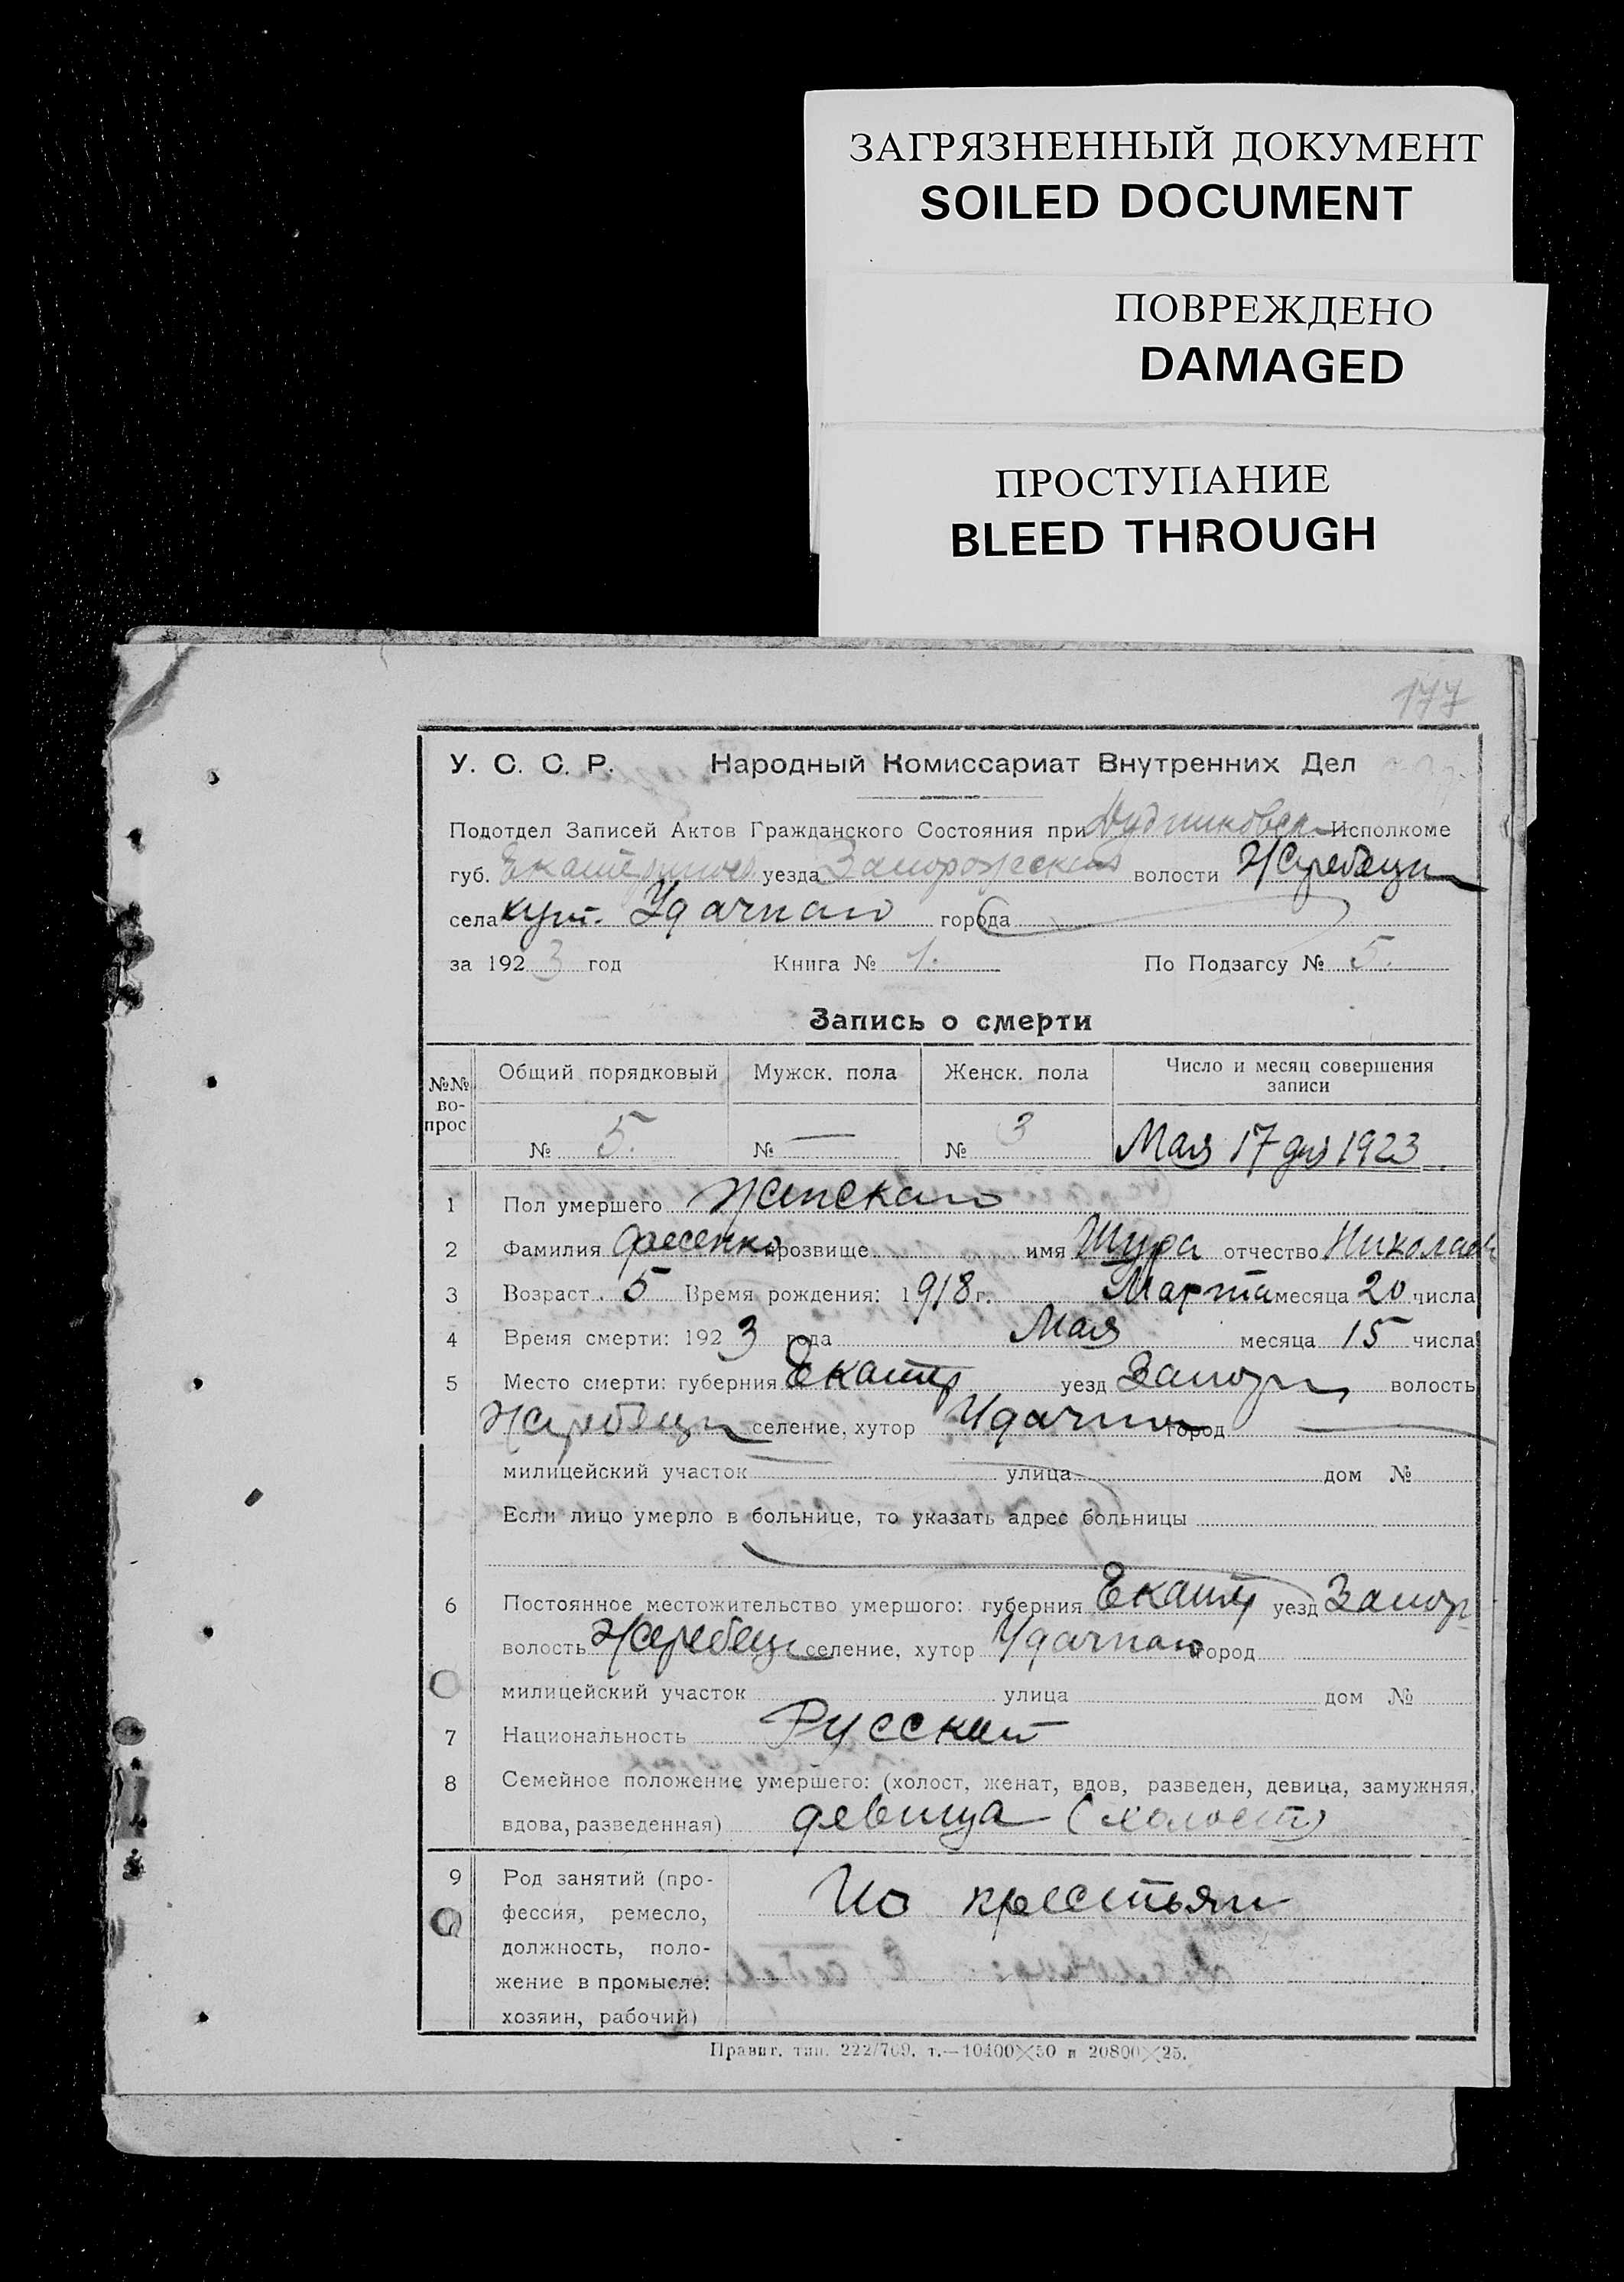 ЗАГРЯЗНЕННЫЙ ДОКУМЕНТ
SOILED DOCUMENT
ПОВРЕЖДЕНО
DAMAGED
ПРОСТУПАНИЕ
BLEED THROUGH
177
У. С. С. Р. Народный Комиссариат Внутренних Дел
Подотдел Записей Актов Гражданского Состояния при Исполкоме
губ. уезда волости Жеребецк
села хут. Удачнаго города
за 1923 год Книга № 1. По Подзагсу № 5.
Запись о смерти
№№ во-прос Общий порядковый Мужск. пола Женск. пола Число и месяц совершения записи
№ 5. № — № 3 Мая 17 дня 1923
1 Пол умершего Женскаго
2 Фамилия прозвище имя Шура отчество Николаев
3 Возраст 5 Время рождения: 1918 г. Марта месяца 20 числа
4 Время смерти: 1923 года Мая месяца 15 числа
5 Место смерти: губерния Екатер уезд Запор волость
Жеребецк селение, хутор город
милицейский участок улица дом №
Если лицо умерло в больнице, то указать адрес больницы
6 Постоянное местожительство умершого: губерния Екатер уезд Запор
волость Жеребецк селение, хутор Удачнаго город
милицейский участок улица дом №
7 Национальность Русский
8 Семейное положение умершего: (холост, женат, вдов, разведен, девица, замужняя,
вдова, разведенная) девица (холост)
9 Род занятий (про-
фессия, ремесло,
должность, поло-
жение в промысле:
хозяин, рабочий)
крестьян
Правиг. тип. 222/769. т.—10400×50 и 20800×25.